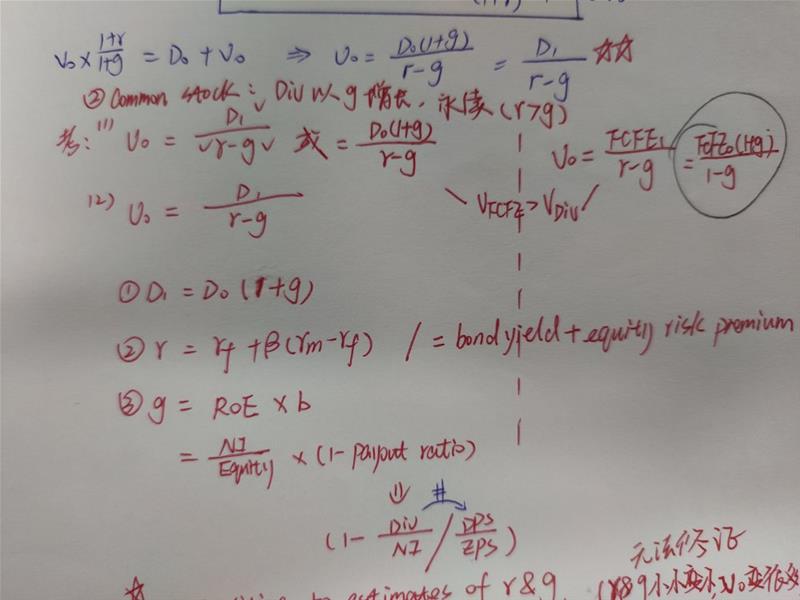 V₀ × (1+r)/(1+g) = D₀ + V₀ ⇒ V₀ = D₀(1+g)/(r-g) = D₁/(r-g) ☆☆
② Common stock: Div 以 g 增长, 永续 (r>g)
考: (1) V₀ = D₁/(r-g) 或 = D₀(1+g)/(r-g)
V₀ = FCFE₁/(r-g) = FCFE₀(1+g)/(1-g)
(2) V₀ = D₁/(r-g)
\ V_FCFE > V_Div /
① D₁ = D₀(1+g)
② r = rf + β(rm-rf) / = bond yield + equity risk premium
③ g = ROE × b
= NI/Equity × (1- payout ratio)
⇓ #
(1- Div/NI / DPS/EPS)
无法修证
☆ to estimates of r&g. (r&g 小小变小, V₀ 变很多